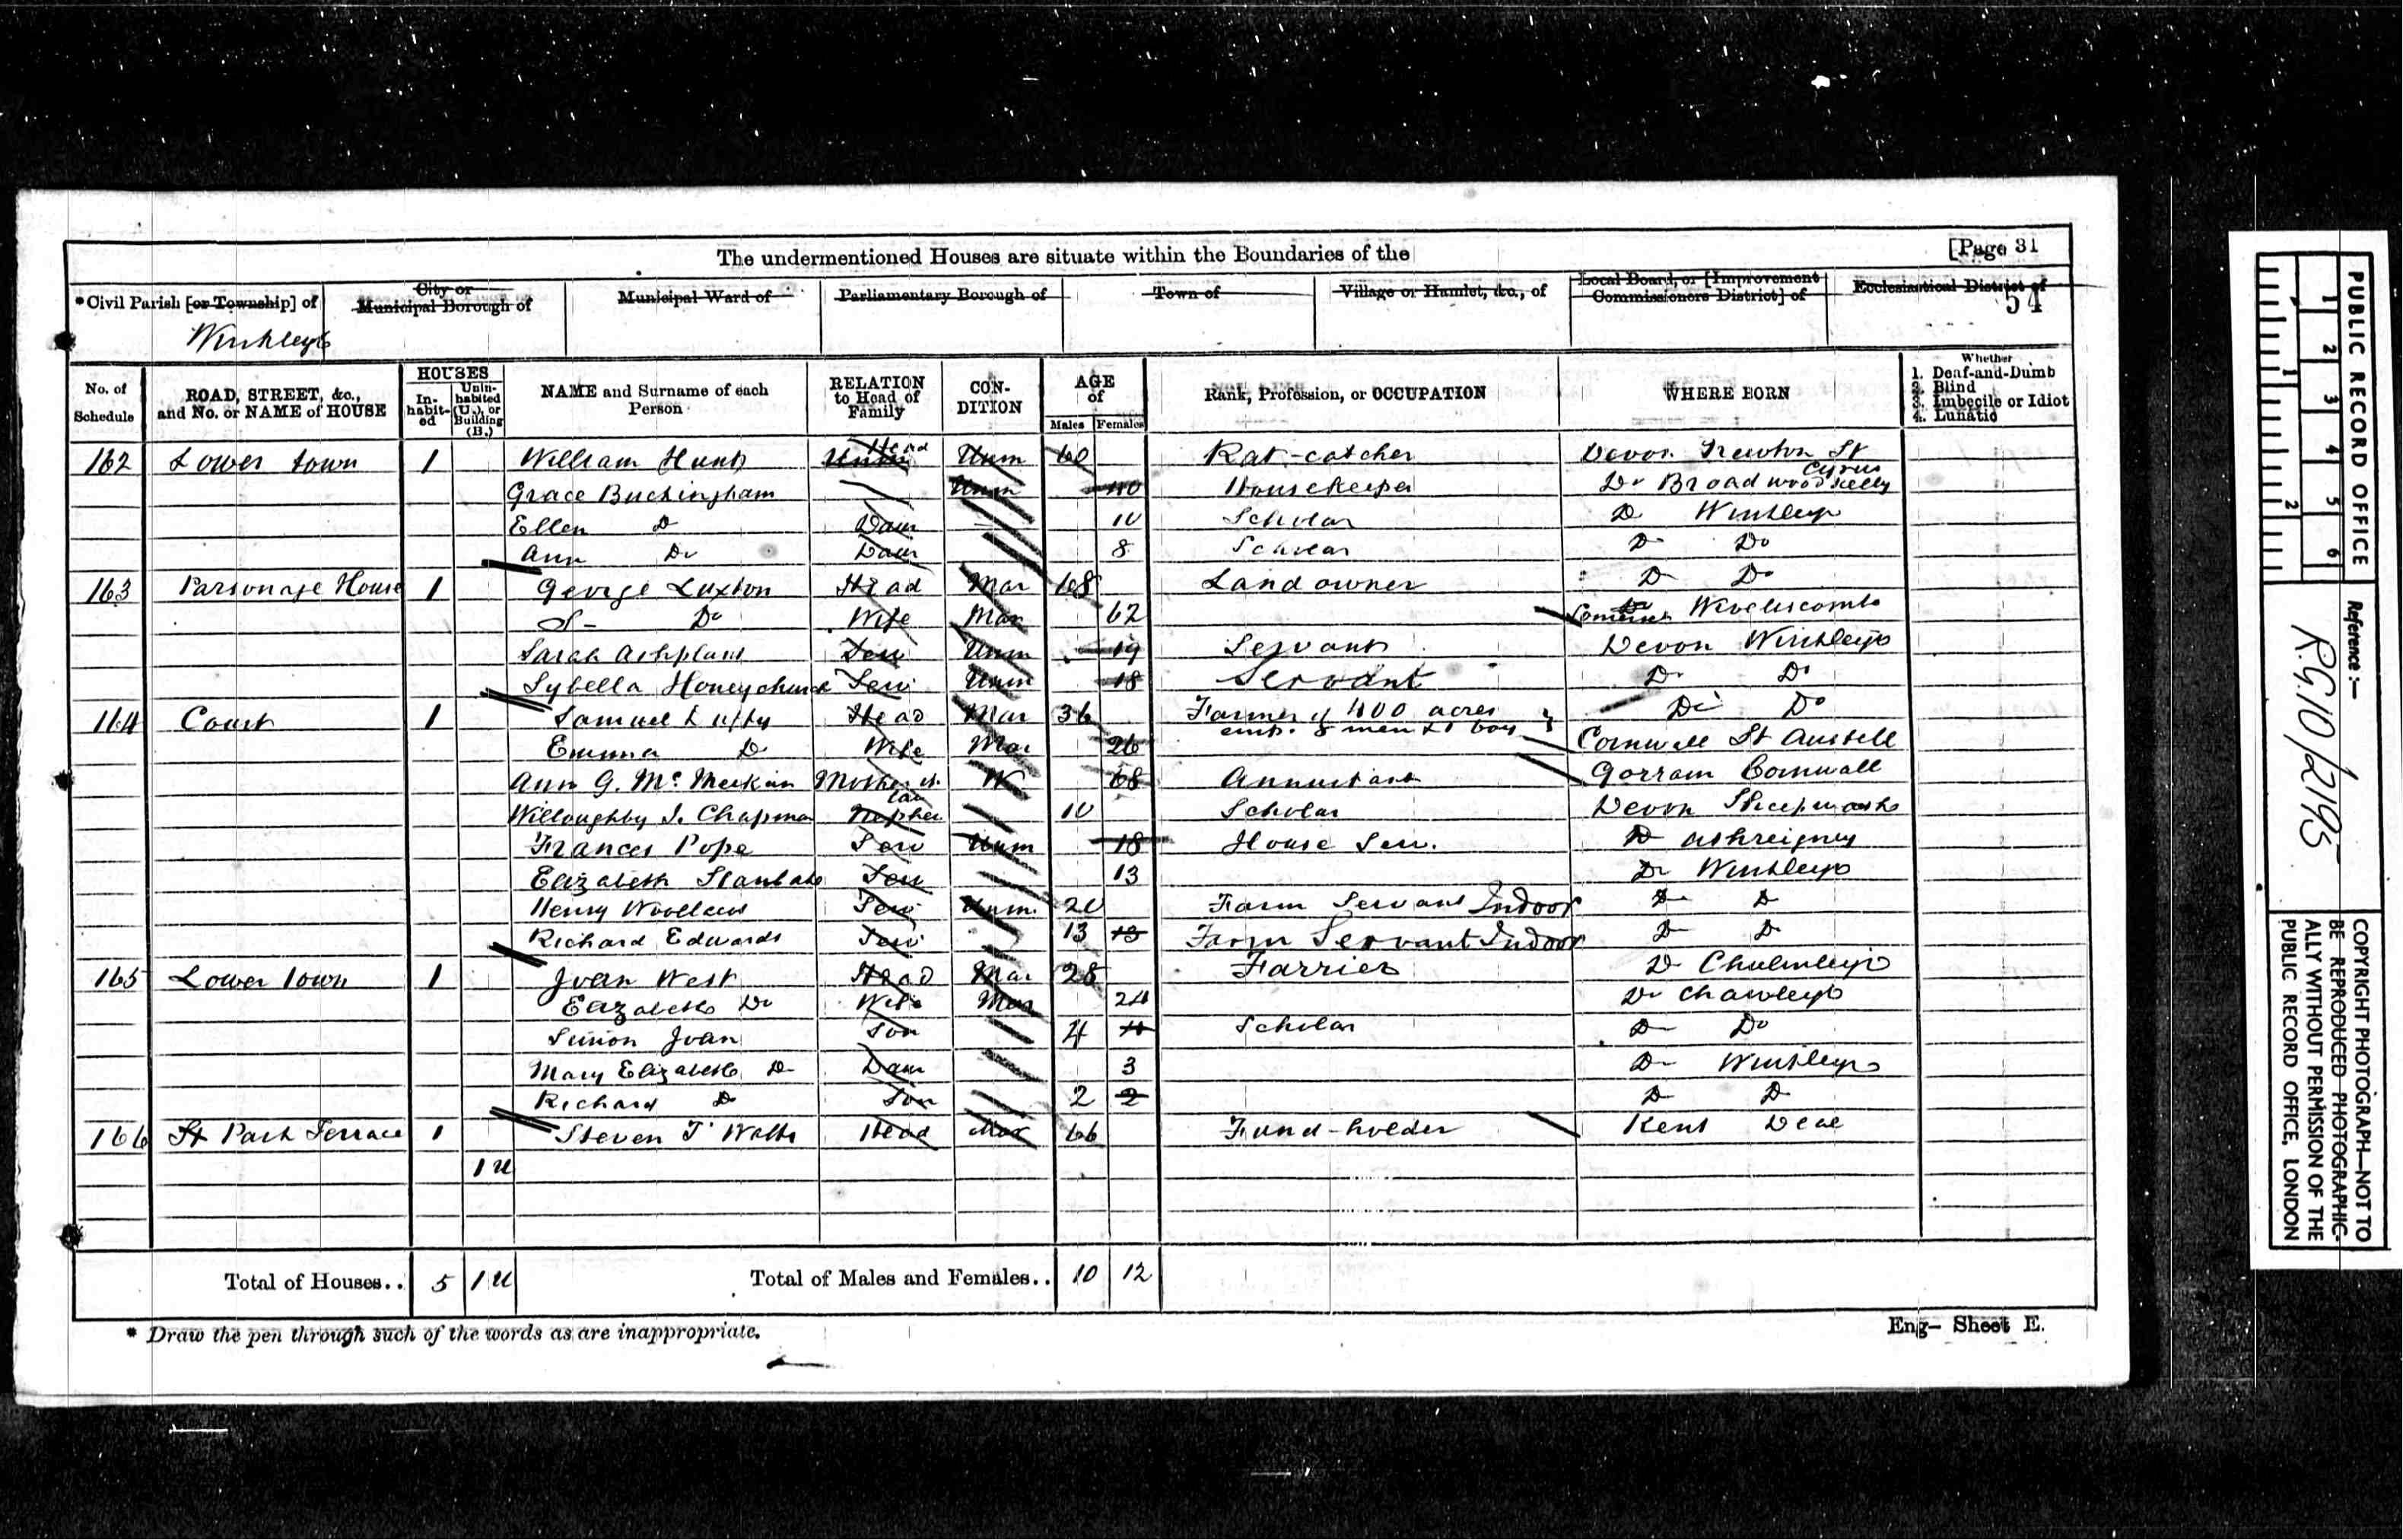 The undermentioned Houses are situate within the Boundaries of the [Page 31
*Civil Parish [or Township] of
City or Municipal Borough of
Municipal Ward of
Parliamentary Borough of
Town of
Village or Hamlet, &c., of
Local Board, or [Improvement Commissioners District] of
Ecclesiastical District of
54
Winkleigh
No. of Schedule
ROAD, STREET, &c., and No. or NAME of HOUSE
HOUSES
In-habit-ed
Unin-habited (U.), or Building (B.)
NAME and Surname of each Person
RELATION to Head of Family
CON-DITION
AGE of
Males Females
Rank, Profession, or OCCUPATION
WHERE BORN
Whether
1. Deaf-and-Dumb
2. Blind
3. Imbecile or Idiot
4. Lunatic
162 Lower town 1 William Hunt Head Unm 60 Rat-catcher Devon Newton St Cyrus
Grace Buckingham Unm 40 Housekeeper Do Broadwood Kelly
Ellen D Daur 10 Scholar D Winkleigh
Ann Do Daur 8 Scholar D Do
163 Parsonage House 1 George Luxton Head Mar 68 Land owner D Do
S- Do Wife Mar 62 Somerset Wiveliscomb
Sarah Ashplant Serv Unm 19 Servant Devon Winkleigh
Sybella Honeychurch Serv Unm 18 Servant D D
164 Court 1 Samuel Head Mar 36 Farmer of 400 acres Do Do
emp. 8 men & 1 boy
Emma D Wife Mar 26 Cornwall St Austell
Ann G. Mc Meekin Mother in law W 68 Annuitant Gorram Cornwall
Willoughby J. Chapman Nephew 10 Scholar Devon Sheepwash
Frances Pope Serv Unm 18 House Serv. D Ashreigney
Elizabeth Serv 13 Do Winkleigh
Henry Woollacott Serv Unm. 20 Farm Servant Indoor D D
Richard Edwards Serv 13 13 Farm Servant Indoor D D
165 Lower Town 1 Head Mar 28 Farrier D Chulmleigh
Elizabeth Do Wife Mar 24 Do Chawleigh
Simon Son 4 4 Scholar D Do
Mary Elizabeth D Daur 3 D Winkleigh
Richard D Son 2 2 D D
166 St Park Terrace 1 Steven T Watts Head Mar 66 Fund-holder Kent Deal
1 U
Total of Houses.. 5 1 U Total of Males and Females.. 10 12
* Draw the pen through such of the words as are inappropriate.
Eng— Sheet E.
PUBLIC RECORD OFFICE
1 2 3 4 5 6
1 2
Reference:—
RG10/2195
COPYRIGHT PHOTOGRAPH—NOT TO
BE REPRODUCED PHOTOGRAPHIC-
ALLY WITHOUT PERMISSION OF THE
PUBLIC RECORD OFFICE, LONDON